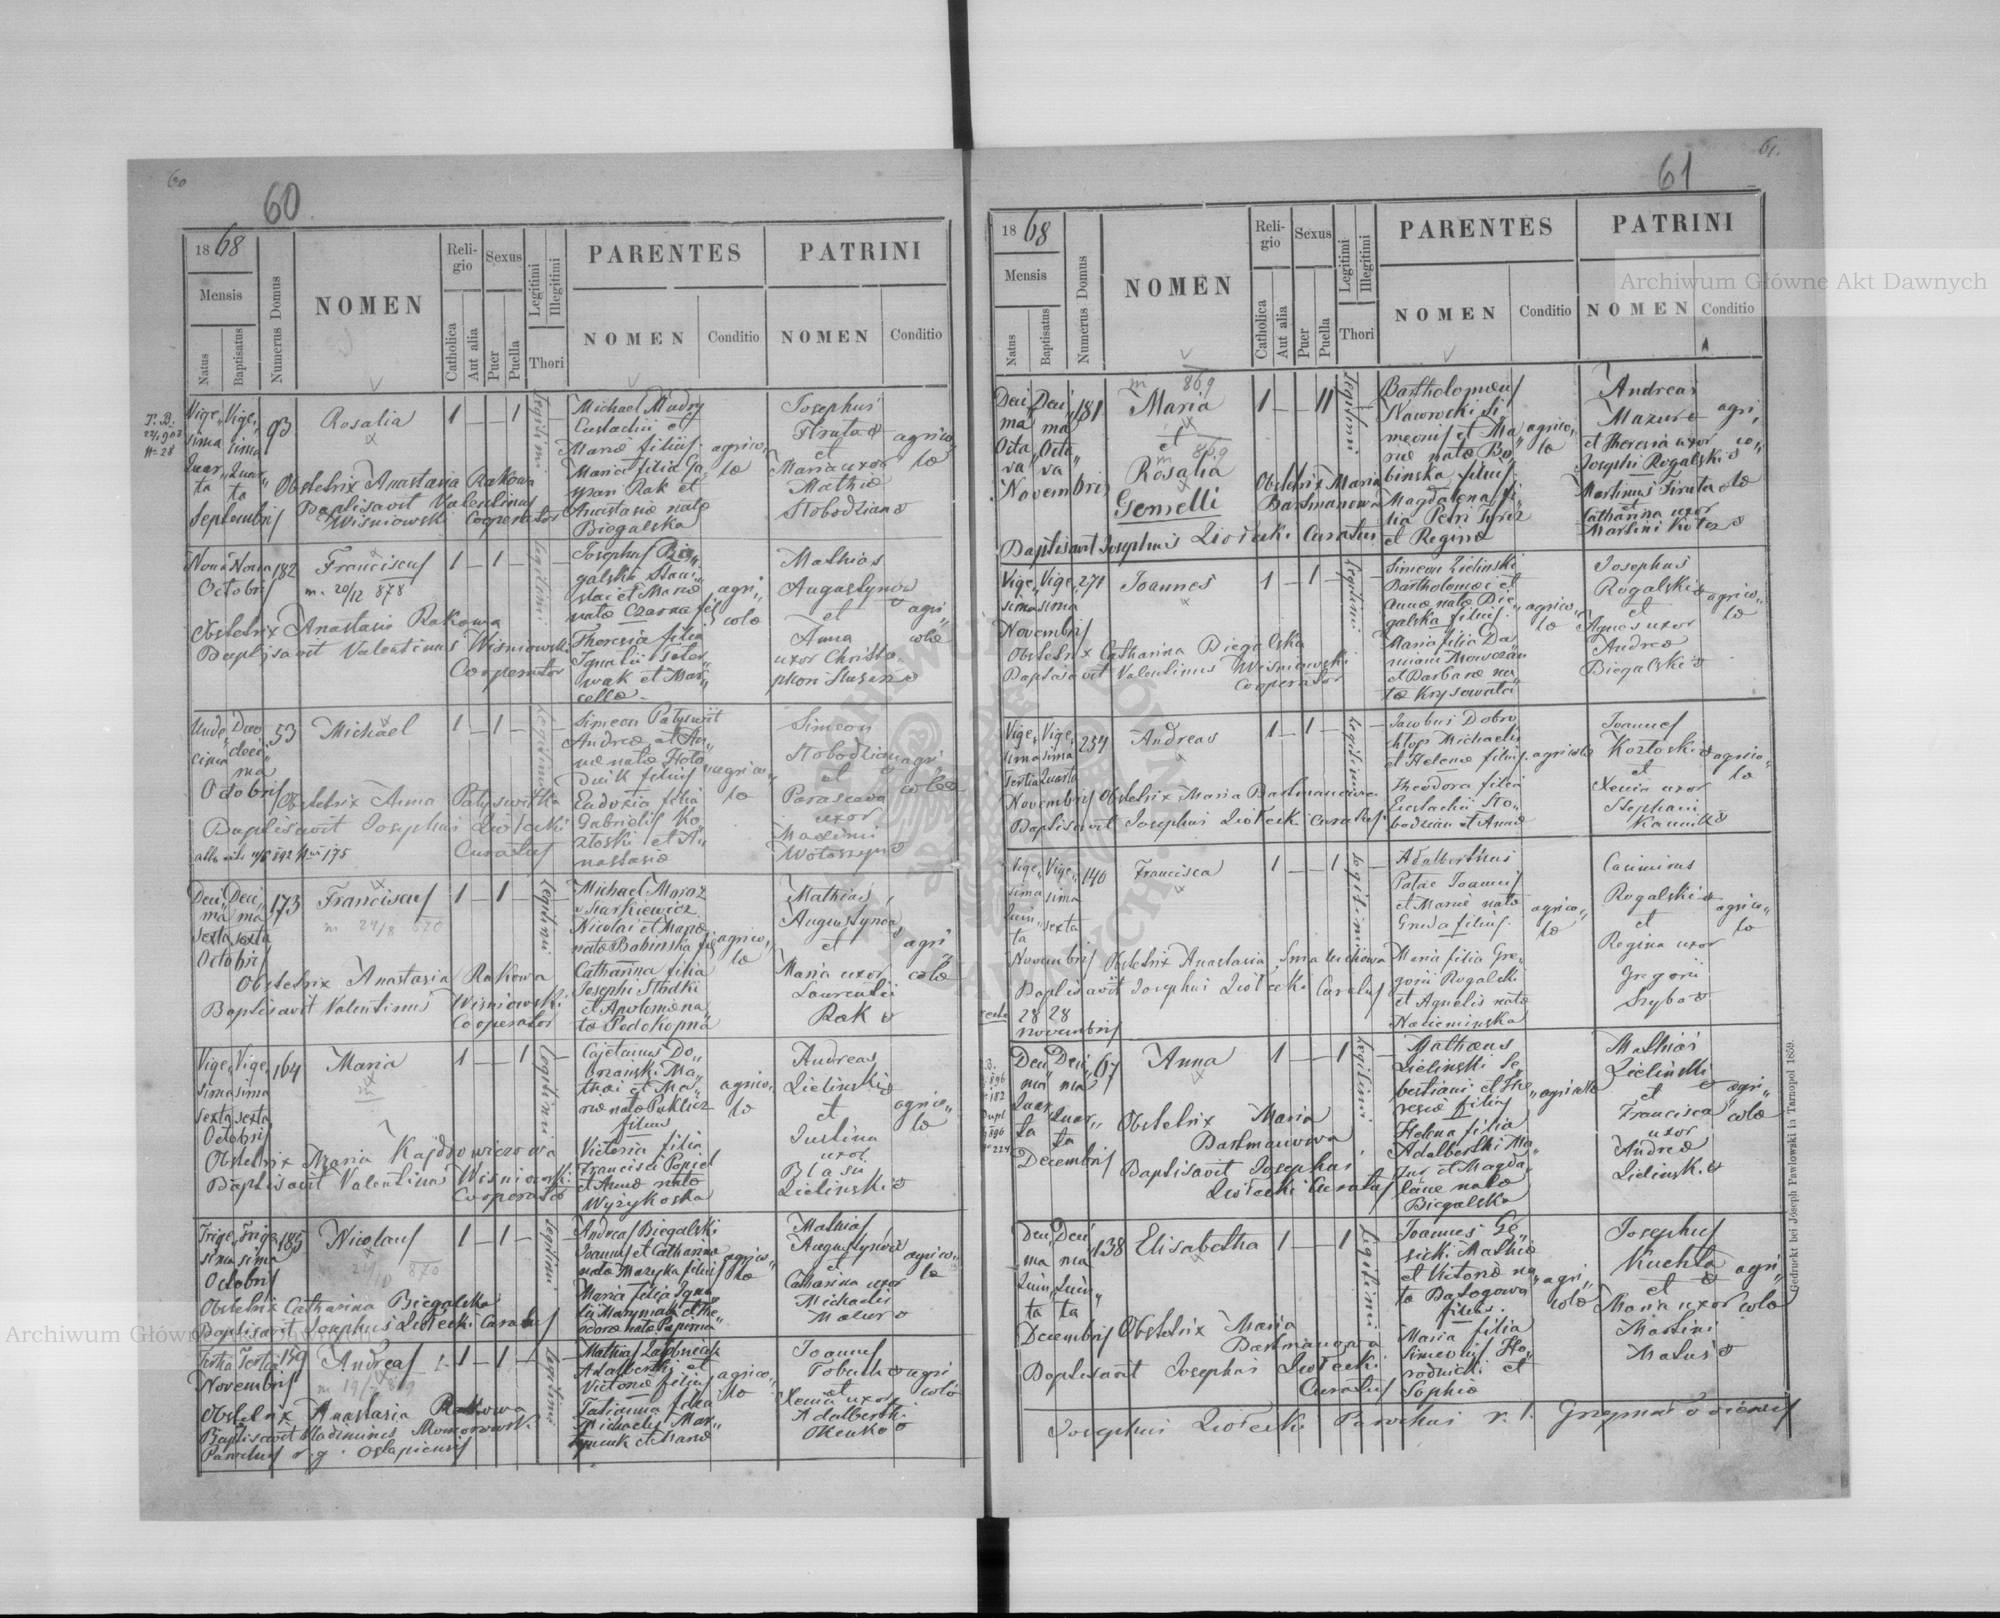 60
60
18 68
Mensis
Natus
Baptisatus
Numerus Domus
NOMEN
Religio
Catholica
Aut alia
Sexus
Puer
Puella
Legitimi
Illegitimi
Thori
PARENTES
NOMEN
Conditio
PATRINI
NOMEN
Conditio
Vige„ Vige„
sima sima
Quar„ Quar„
ta ta
Septembris
93
Rosalia
1 — — 1
Legitimi
Michael Mudry
Eustachii et
Mariæ filius.
Maria filia Ga
spari Rak et
Anastasiæ natæ
Biegalska
agrico„
læ
Josephus
Firuta
et
Maria uxor
Mathiæ
Slobodziana
agrico„
læ
Obstetrix Anastasia Rakowa
Baptisavit Valentinus
Wisniowski Cooperator
Nona Nona
Octobris
182
Franciscus
m. 20/12 878
1 — 1 —
Legitimi
Josephus Bie„
galski Stani„
slai et Mariæ
natæ Czarna fil
Theresia filia
Ignatii Seter„
wak et Mar„
cellæ
agri„
colæ
Mathias
Augustynow
et
Anna
uxor Christo„
phori
agri„
colæ
Obstetrix Anastasia Rakowa
Baptisavit Valentinus Wisniowski
Cooperator
Unde„ Duo
cima deci„
ma
Octobris
53
Michael
1 — 1 —
Legitimi
Simeon Patyswit
Andreæ et An„
næ natæ Hoło„
duik filius
Eudoxia filia
Gabrielis Ko„
złoski et A„
nastasiæ
agrico„
læ
Simeon
Slobodzian
et
Parasceva
uxor
Maximi
Wołoszyn
agri„
colæ
Obstetrix Anna Patyswitka
Baptisavit Josephus Ziołecki
Curatus
Deci„ Deci„
ma ma
sexta sexta
Octobris
173
Franciscus
m 24/8 870
1 — 1 —
Legitimi
Michael Moroz
v Starkiewicz
Nicolai et Mariæ
natæ Babinska fi„
Catharina filia
Josephi Stadki
et Apoloniæ na„
tæ Podkopna
agrico„
læ
Mathias
Augustynow
et
Maria uxor
Laurentii
Rak
agri„
colæ
Obstetrix Anastasia Rakowa
Baptisavit Valentinus Wisniowski
Cooperator
Vige„ Vige„
sima sima
sexta sexta
Octobris
164
Maria
1 — — 1
Legitimi
Cajetanus Do„
brzanski Ma„
thæi et Ma„
riæ natæ Puklicz
filius
Victoria filia
Francisci Popiel
et Annæ natæ
Wyżykoska
agrico„
læ
Andreas
Zielinski
et
Justina
uxor
Blasii
Zielinski
agrico„
læ
Obstetrix Maria Kajdrowiczowa
Baptisavit Valentinus Wisniowski
Cooperator
Trige„ Trige„
sima sima
Octobris
185
Nicolaus
24/10 870
1 — 1 —
Legitimi
Andreas Biegalski
Joannis et Catharinæ
natæ Mazyka filius
Maria filia Igna„
tii Martyniak et The„
odoræ natæ Papirna
agrico„
læ
Mathias
Augustynow
et
Catharina uxor
Michaelis
Mazur
agrico„
læ
Obstetrix Catharina Biegalska
Baptisavit Josephus Ziołecki Curatus
Tertia Tertia
Novembris
149
Andreas
m 19/ 869
1 — 1 —
Legitimi
Mathias
Adalberti et
Victoriæ filius
Tatianna filia
Michaelis Mar„
tyniuk et Mariæ
agrico„
læ
Joannes
Tobiuch
et
Xenia uxor
Adalberti
agri
colæ
Obstetrix Anastasia Rakowa
Baptisavit
Parochus r. g. Ostapiensis
61.
61
18 68
Mensis
Natus
Baptisatus
Numerus Domus
NOMEN
Religio
Catholica
Aut alia
Sexus
Puer
Puella
Legitimi
Illegitimi
Thori
PARENTES
NOMEN
Conditio
PATRINI
NOMEN
Conditio
Deci Deci„
ma ma
Octa Octa„
va va
Novembris
181
m 869
Maria
et
m 869
Rosalia
Gemelli
1 — — 11
Legitimi
Bartholomæus
Nawrocki Si„
meonis et Ma„
riæ natæ Bo„
binska filius
Magdalena fi„
lia Petri
et Reginæ
agrico„
læ
Andreas
Mazur
et Theresia uxor
Josephi Rogalski
Martinus Firuta
et
Catharina uxor
Martini Kotez
agri„
co„
læ
Obstetrix Maria
Bartmanowa
Baptisavit Josephus Ziołecki Curatus
Vige„ Vige„
sima sima
Novembris
271
Joannes
1 — 1 —
Legitimi
Simeon Zielinski
Bartholomæi et
Annæ natæ Bie„
galska filius.
Maria filia Da„
miani Mowczan
et Barbaræ na„
tæ Krysowata
agrico„
læ
Josephus
Rogalski
et
Agnes uxor
Andreæ
Biegalski
agrico„
læ
Obstetrix Catharina Biegalska
Baptisavit Valentinus Wisniowski
Cooperator
Vige„ Vige„
sima sima
Tertia Quarta
Novembris
254
Andreas
1 — 1 —
Legitimi
Jacobus Dobro„
chłop Michaelis
et Helenæ filius.
Theodora filia
Eustachii Slo„
bodzian et Annæ
agricolæ
Joannes
Kozłoski
et
Xenia uxor
Stephani
agrico„
læ
Obstetrix Maria Bartmanowa
Baptisavit Josephus Ziołecki Curatus
Vige„ Vige„
sima sima
Quin„ sexta
ta
Novembris
28 28
novembris
140
Francisca
1 — — 1
Legitimi
Adalbertus
Patac Joannis
et Mariæ natæ
Gruda filius.
Maria filia Gre„
gorii Rogalski
et Agnetis natæ
agrico„
læ
Casimirus
Rogalski
et
Regina uxor
Gregorii
Szyba
agrico„
læ
Obstetrix Anastasia
Baptisavit Josephus Ziołecki Curatus
Deci„ Deci„
ma ma
Quar„ Quar„
ta ta
Decembris
67
Anna
1 — — 1
Legitimi
Mathæus
Zielinski Se„
bestiani et The„
resiæ filius
Helena filia
Adalberti Ma„
zur et Magda„
lenæ natæ
Biegalska
agricolæ
Mathias
Zielinski
et
Francisca
uxor
Andreæ
Zielinski
agri„
colæ
Obstetrix Maria
Bartmanowa
Baptisavit Josephus
Ziołecki Curatus
Deci„ Deci„
ma ma
Quin„ Quin„
ta ta
Decembris
138
Elisabetha
1 — — 1
Legitimi
Joannes Gę„
sicki Mathiæ
et Victoriæ na„
tæ Batogowa
filius.
Maria filia
Simeonis Ho„
rodnicki et
Sophiæ
agri„
colæ
Josephus
Kuchta
et
Maria uxor
Martini
Matus
agri„
colæ
Obstetrix Maria
Bartmanowa
Baptisavit Josephus Ziołecki
Curatus
Josephus Ziołecki Parochus r. l.
Gedruckt bei Joseph Pawłowski in Tarnopol 1859.
Archiwum Główne Akt Dawnych